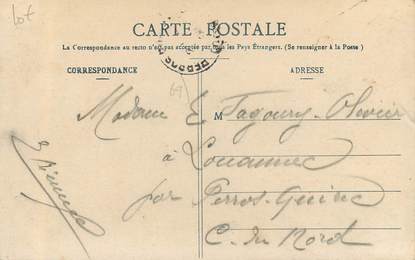 Lot
CARTE POSTALE
La Correspondance au recto n'est pas acceptée par tous les Pays Étrangers. (Se renseigner à la Poste)
CORRESPONDANCE
ADRESSE
69
M
Madame E Tagoury-Olivier
à Louannec
par Perros-Guirec
C. du Nord